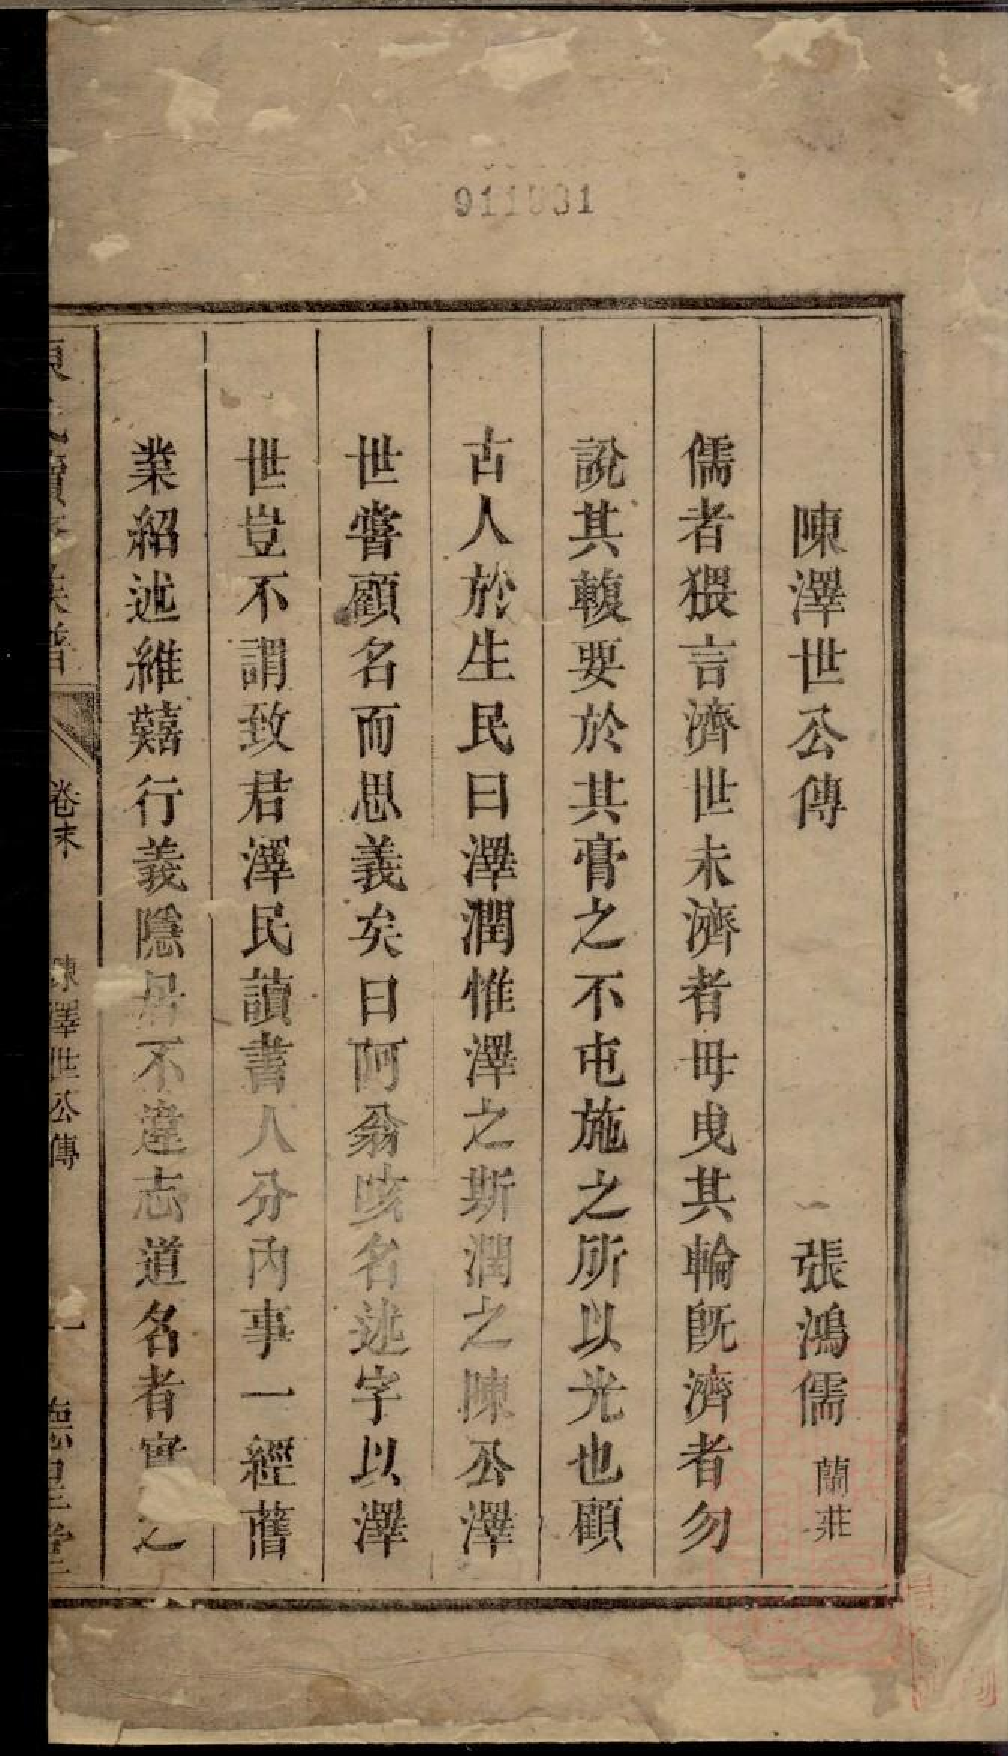 911031
陳澤世公傳 張鴻儒 蘭莊
儒者猥言濟世未濟者毋曳其輪既濟者勿
說其輹要於其膏之不屯施之所以光也顧
古人於生民曰澤潤惟澤之斯潤之陳公澤
世嘗顧名而思義矣曰阿翁咳名述字以澤
世豈不謂致君澤民讀書人分內事一經舊
業紹述維囏行義隱居不違志道名者實之
卷末 陳澤世公傳 一 德星堂